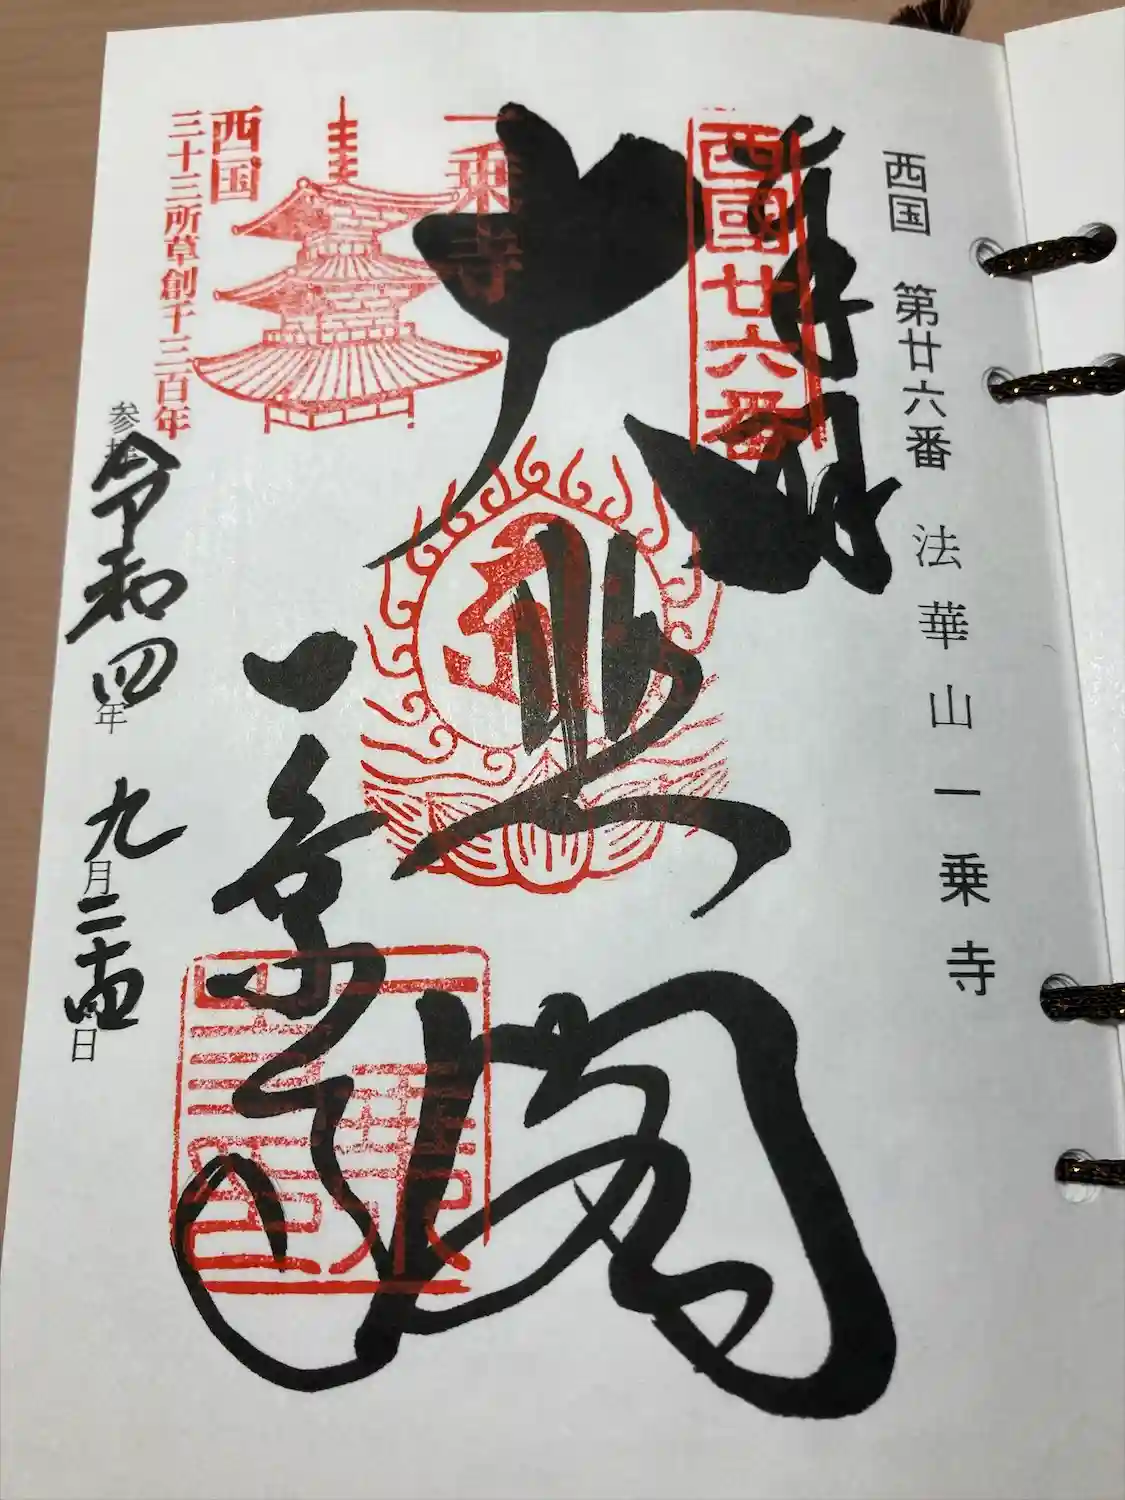 西国 第廿六番 法華山一乗寺
奉拝
西國廿六番
大悲閣
一乗寺
一乗寺
西国
三十三所草創千三百年
参拝
令和四年 九月二十四日